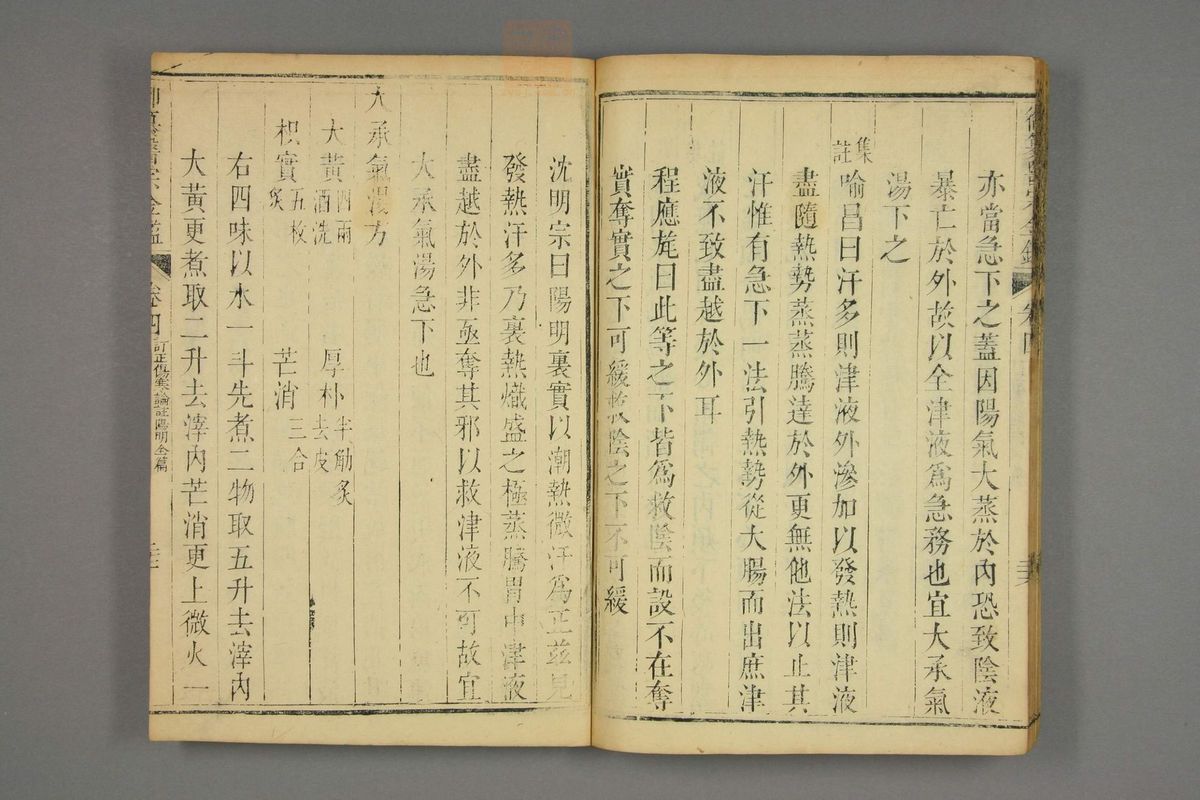 亦當急下之蓋因陽氣大蒸於內恐致陰液
暴亡於外故以全津液爲急務也宜大承氣
湯下之
集註
喻昌曰汗多則津液外滲加以發熱則津液
盡隨熱勢蒸蒸騰達於外更無他法以止其
汗惟有急下一法引熱勢從大腸而出庶津
液不致盡越於外耳
程應旄曰此等之下皆爲救陰而設不在奪
實奪實之下可緩救陰之下不可緩
沈明宗曰陽明裏實以潮熱微汗爲正茲見
發熱汗多乃裏熱熾盛之極蒸騰胃中津液
盡越於外非亟奪其邪以救津液不可故宜
大承氣湯急下也
大承氣湯方
大黃四兩酒洗
厚朴半觔炙去皮
枳實五枚炙
芒消三合
右四味以水一斗先煮二物取五升去滓內
大黃更煮取二升去滓內芒消更上微火一
御纂醫宗金鑑
卷四
訂正傷寒論註陽明全篇